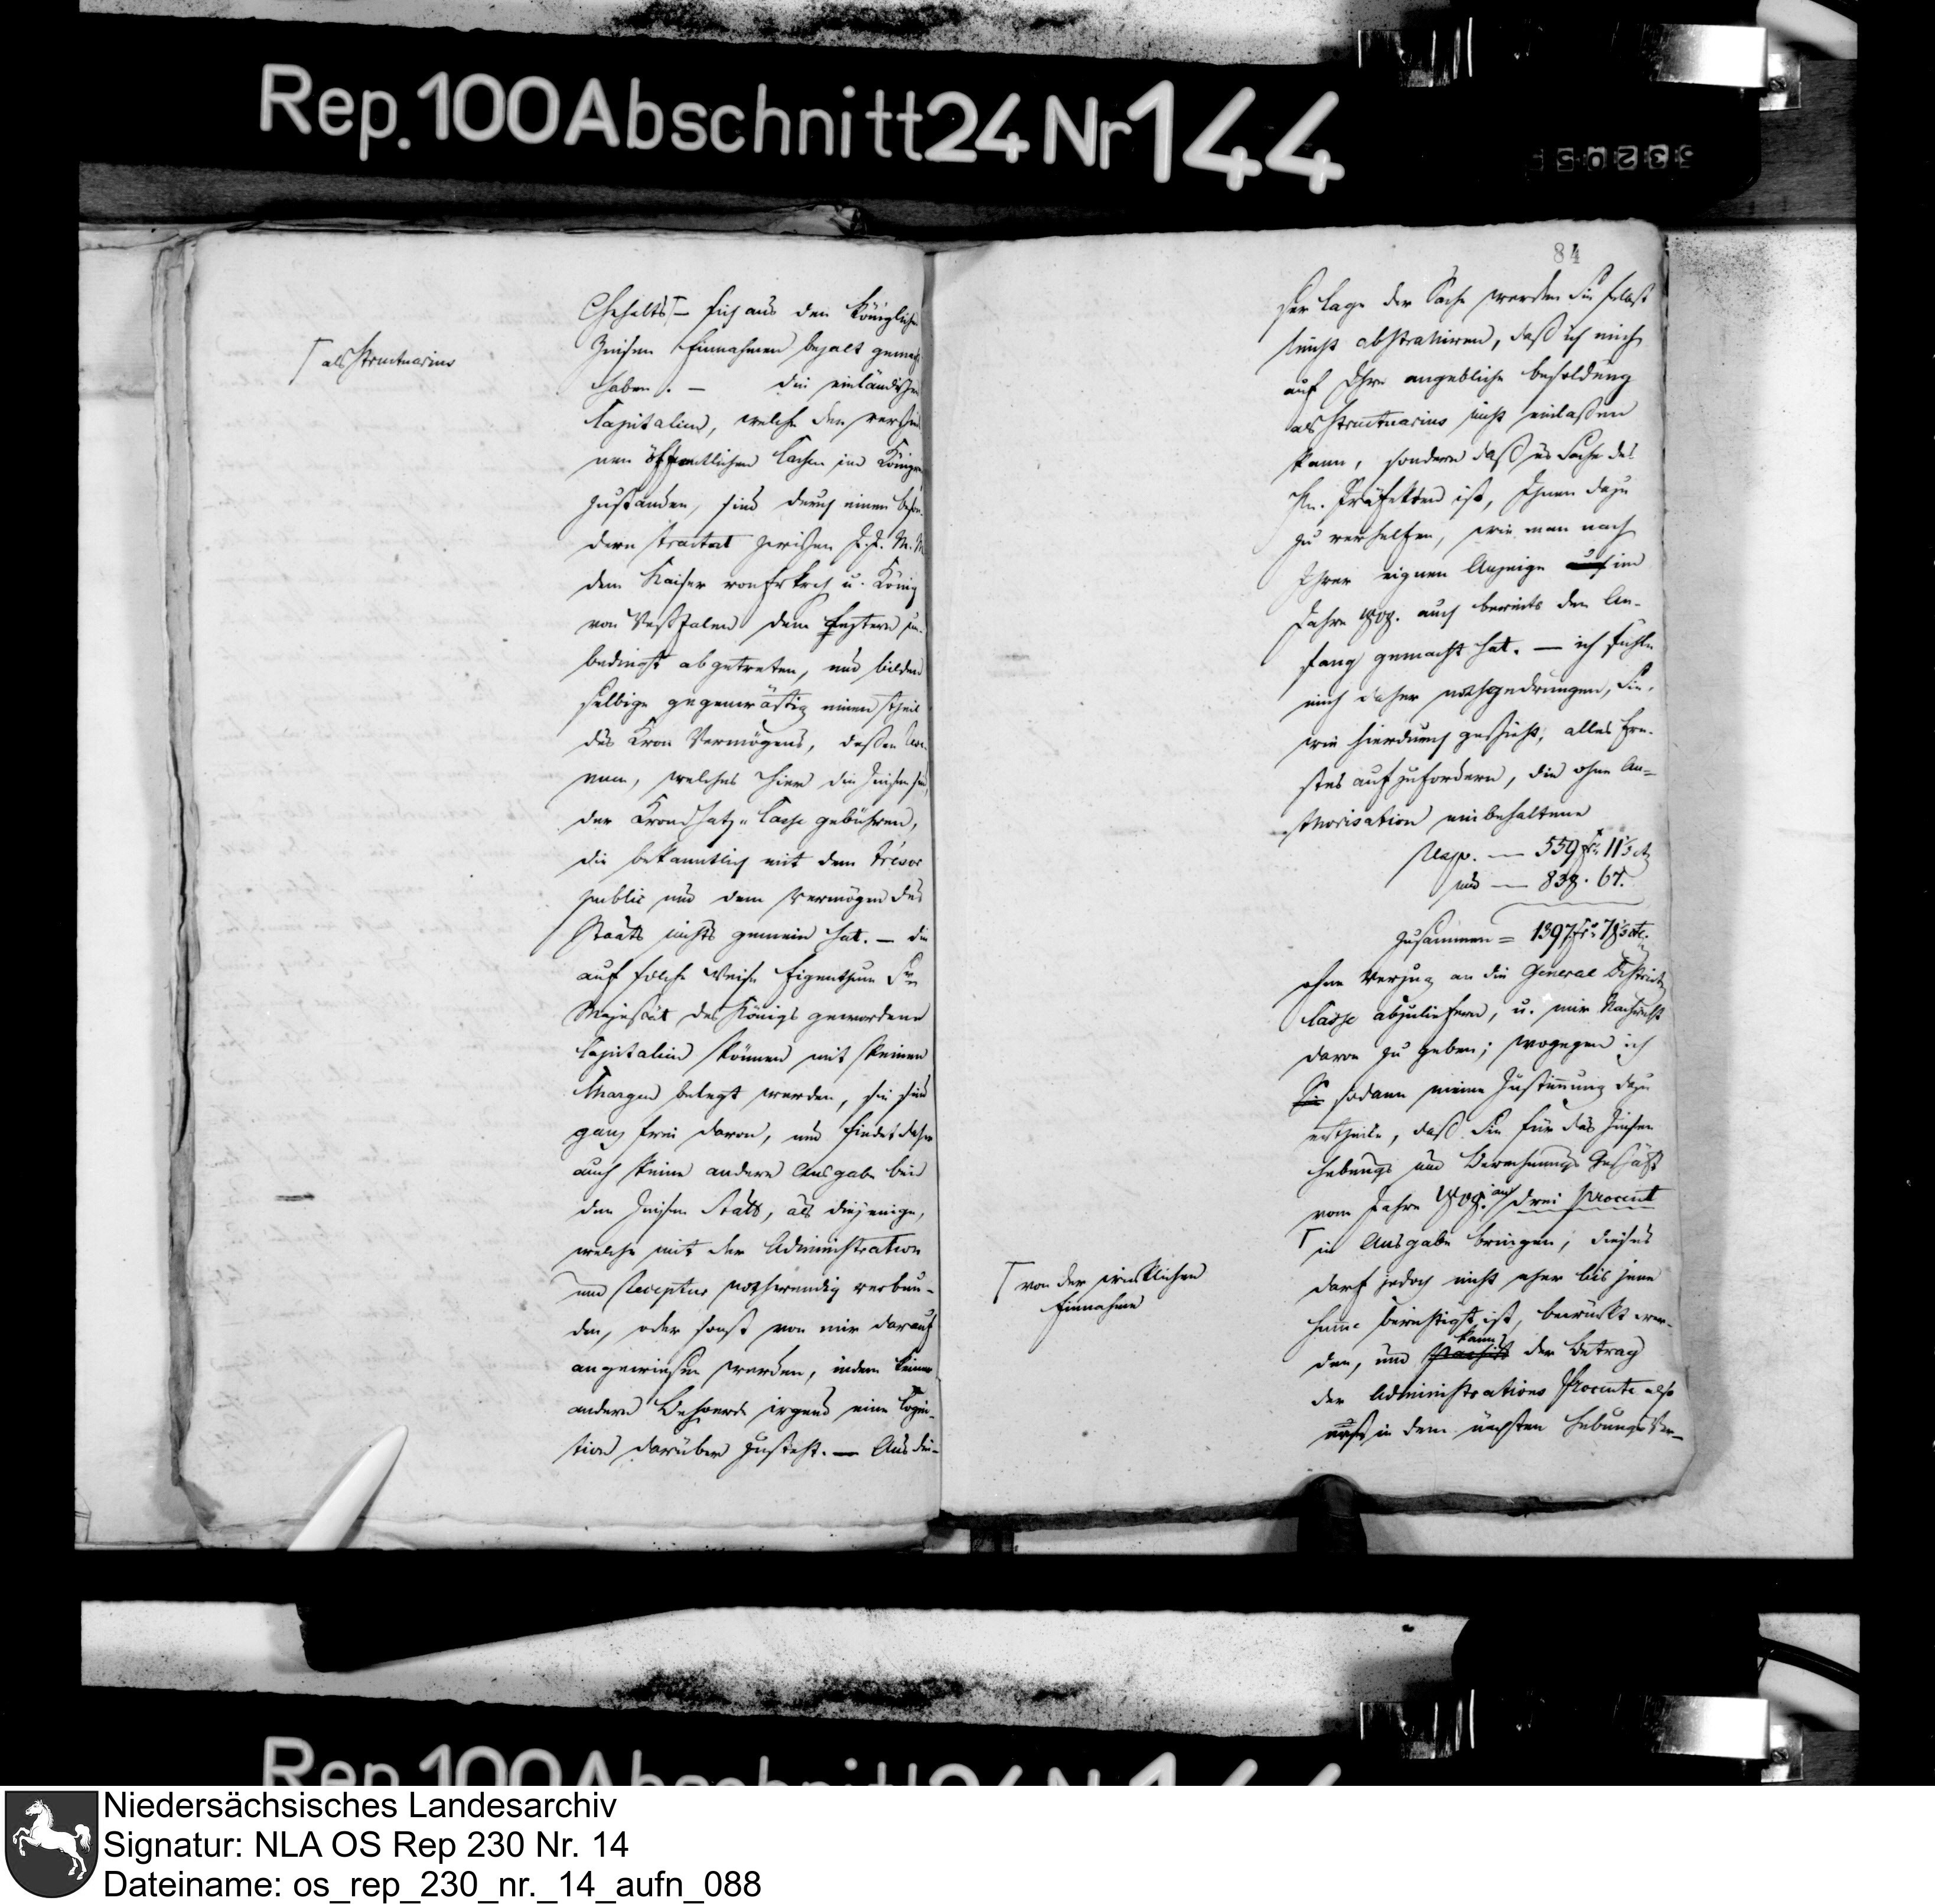 Rep. 100 Abschnitt 24 Nr 144
53205
Gehalts ⌈ – sich aus den Königlichen
Zinsen Einnahmen bezalt gemacht
haben. – die einländischen
Capitalien, welche den verschie
nen öffentlichen Cassen im Königr.
zustanden, sind durch einen beson-
dern Tractat zwischen I.I. M.M.
dem Kaiser von Frkrch u. König
von Westfalen dem Letztern un-
bedingt abgetreten, und bilden
selbige gegenwärtig einen Theil
des Kron Vermögens, deßen
welches hier die Zinsen sind,
der Kronschatz-Casse gebühren,
die bekanntlich mit dem trésor
public und dem Vermögen des
Staats nichts gemein hat. – die
auf solche Weise Eigenthum Sr
Majestät des Königs gewordene
Capitalien können mit keinen
Chargen belegt werden, sie sind
ganz frei davon, und findet daher
auch keine andere Ausgabe bei
den Zinsen Statt, als diejenige,
welche mit der Administration
und Receptur nothwendig verbun-
den, oder sonst von mir darauf
angewiesen werden, indem keiner
andern Behoerde irgend eine Cogni-
tion darüber zusteht. – Aus die-
⌈ als Structuarius
84
ser Lage der Sache werden Sie selbst
leicht abstrahiren, daß ich mich
auf Ihre angebliche Besoldung
als Structuarius nicht einlaßen
kann, sondern daß es Sache des
Hn. Präfekten ist, Ihnen dazu
zu verhelfen, wie man nach
Ihrer eignen Anzeige im
Jahre 1808. auch bereits den An-
fang gemacht hat. – ich fühle
mich daher nothgedrungen, Sie,
wie hierdurch geschieht, alles Ern-
stes aufzufordern, die ohne Au-
thorisation einbehaltene
resp. – 559 frs 11 1/3 ct
und – 838. 67.
zusammen = 1397 frs 78 1/3 ct.
ohne Verzug an die General Districts
Casse abzuliefern, u. mir Nachricht
davon zu geben; wogegen ich
Sie sodann meine Zustimung dazu
ertheile, daß Sie für das Zinsen
Hebungs und Berechnungs Geschäft
vom Jahre 1808. an drei Procent
⌈ in Ausgabe bringen; dieses
darf jedoch nicht eher bis jene
Summe berichtigt ist, bewirkt wer-
den, und kann der Betrag
der Administrations Procente also
erst in dem nächsten Hebungs Ver-
⌈ von der wircklichen
Einnahme
Rep. 100 Abschnitt 24 Nr 144
Niedersächsisches Landesarchiv
Signatur: NLA OS Rep 230 Nr. 14
Dateiname: os_rep_230_nr._14_aufn_088